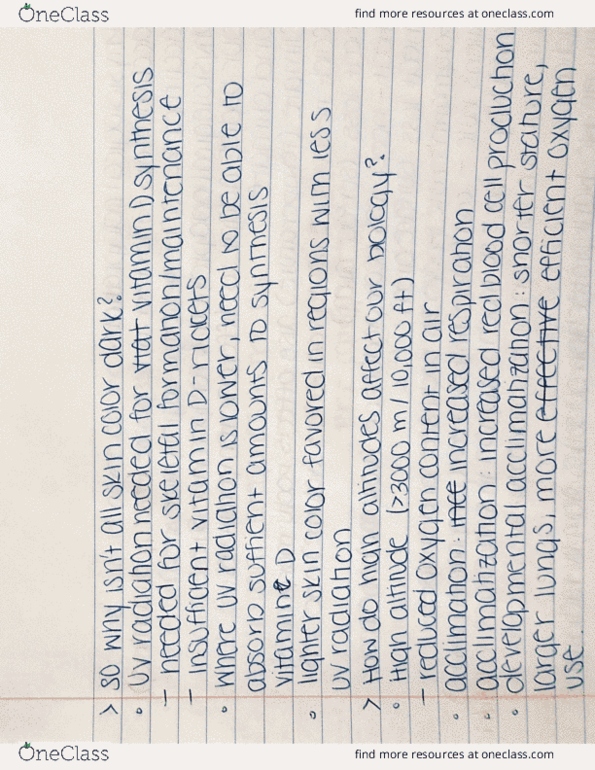 OneClass
find more resources at oneclass.com
> so why isn't all skin color dark?
• UV radiation needed for vitat vitamin D synthesis
- needed for skeletal formation/maintenance
- insufficient vitamin D-rickets
• where UV radiation is lower, need to be able to
absorb suffient amounts to synthesis
vitamin D
• lighter skin color favored in regions with less
UV radiation
> How do high altitudes affect our biology?
• High altitude (>3000 m/10,000 ft)
- reduced oxygen content in air
• acclimation: incc increased respiration
• acclimatization: increased red blood cell production
• developmental acclimatization: shorter stature,
larger lungs, more effective efficient oxygen
use.
OneClass
find more resources at oneclass.com